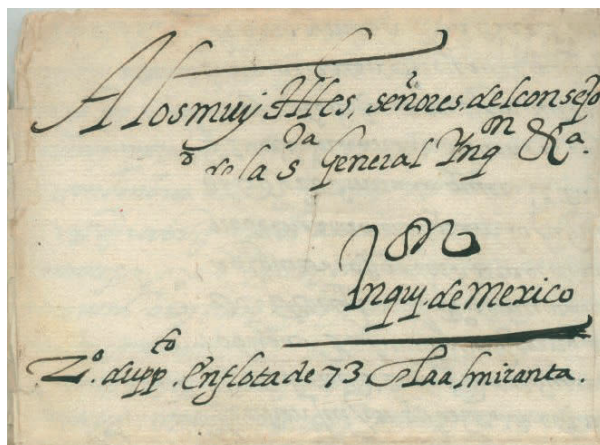 A los muy Illes. señores. del consejo
de la sta General Inqon &ca.
Inquon. de Mexico
2o. duppto. En flota de 73 la almiranta.